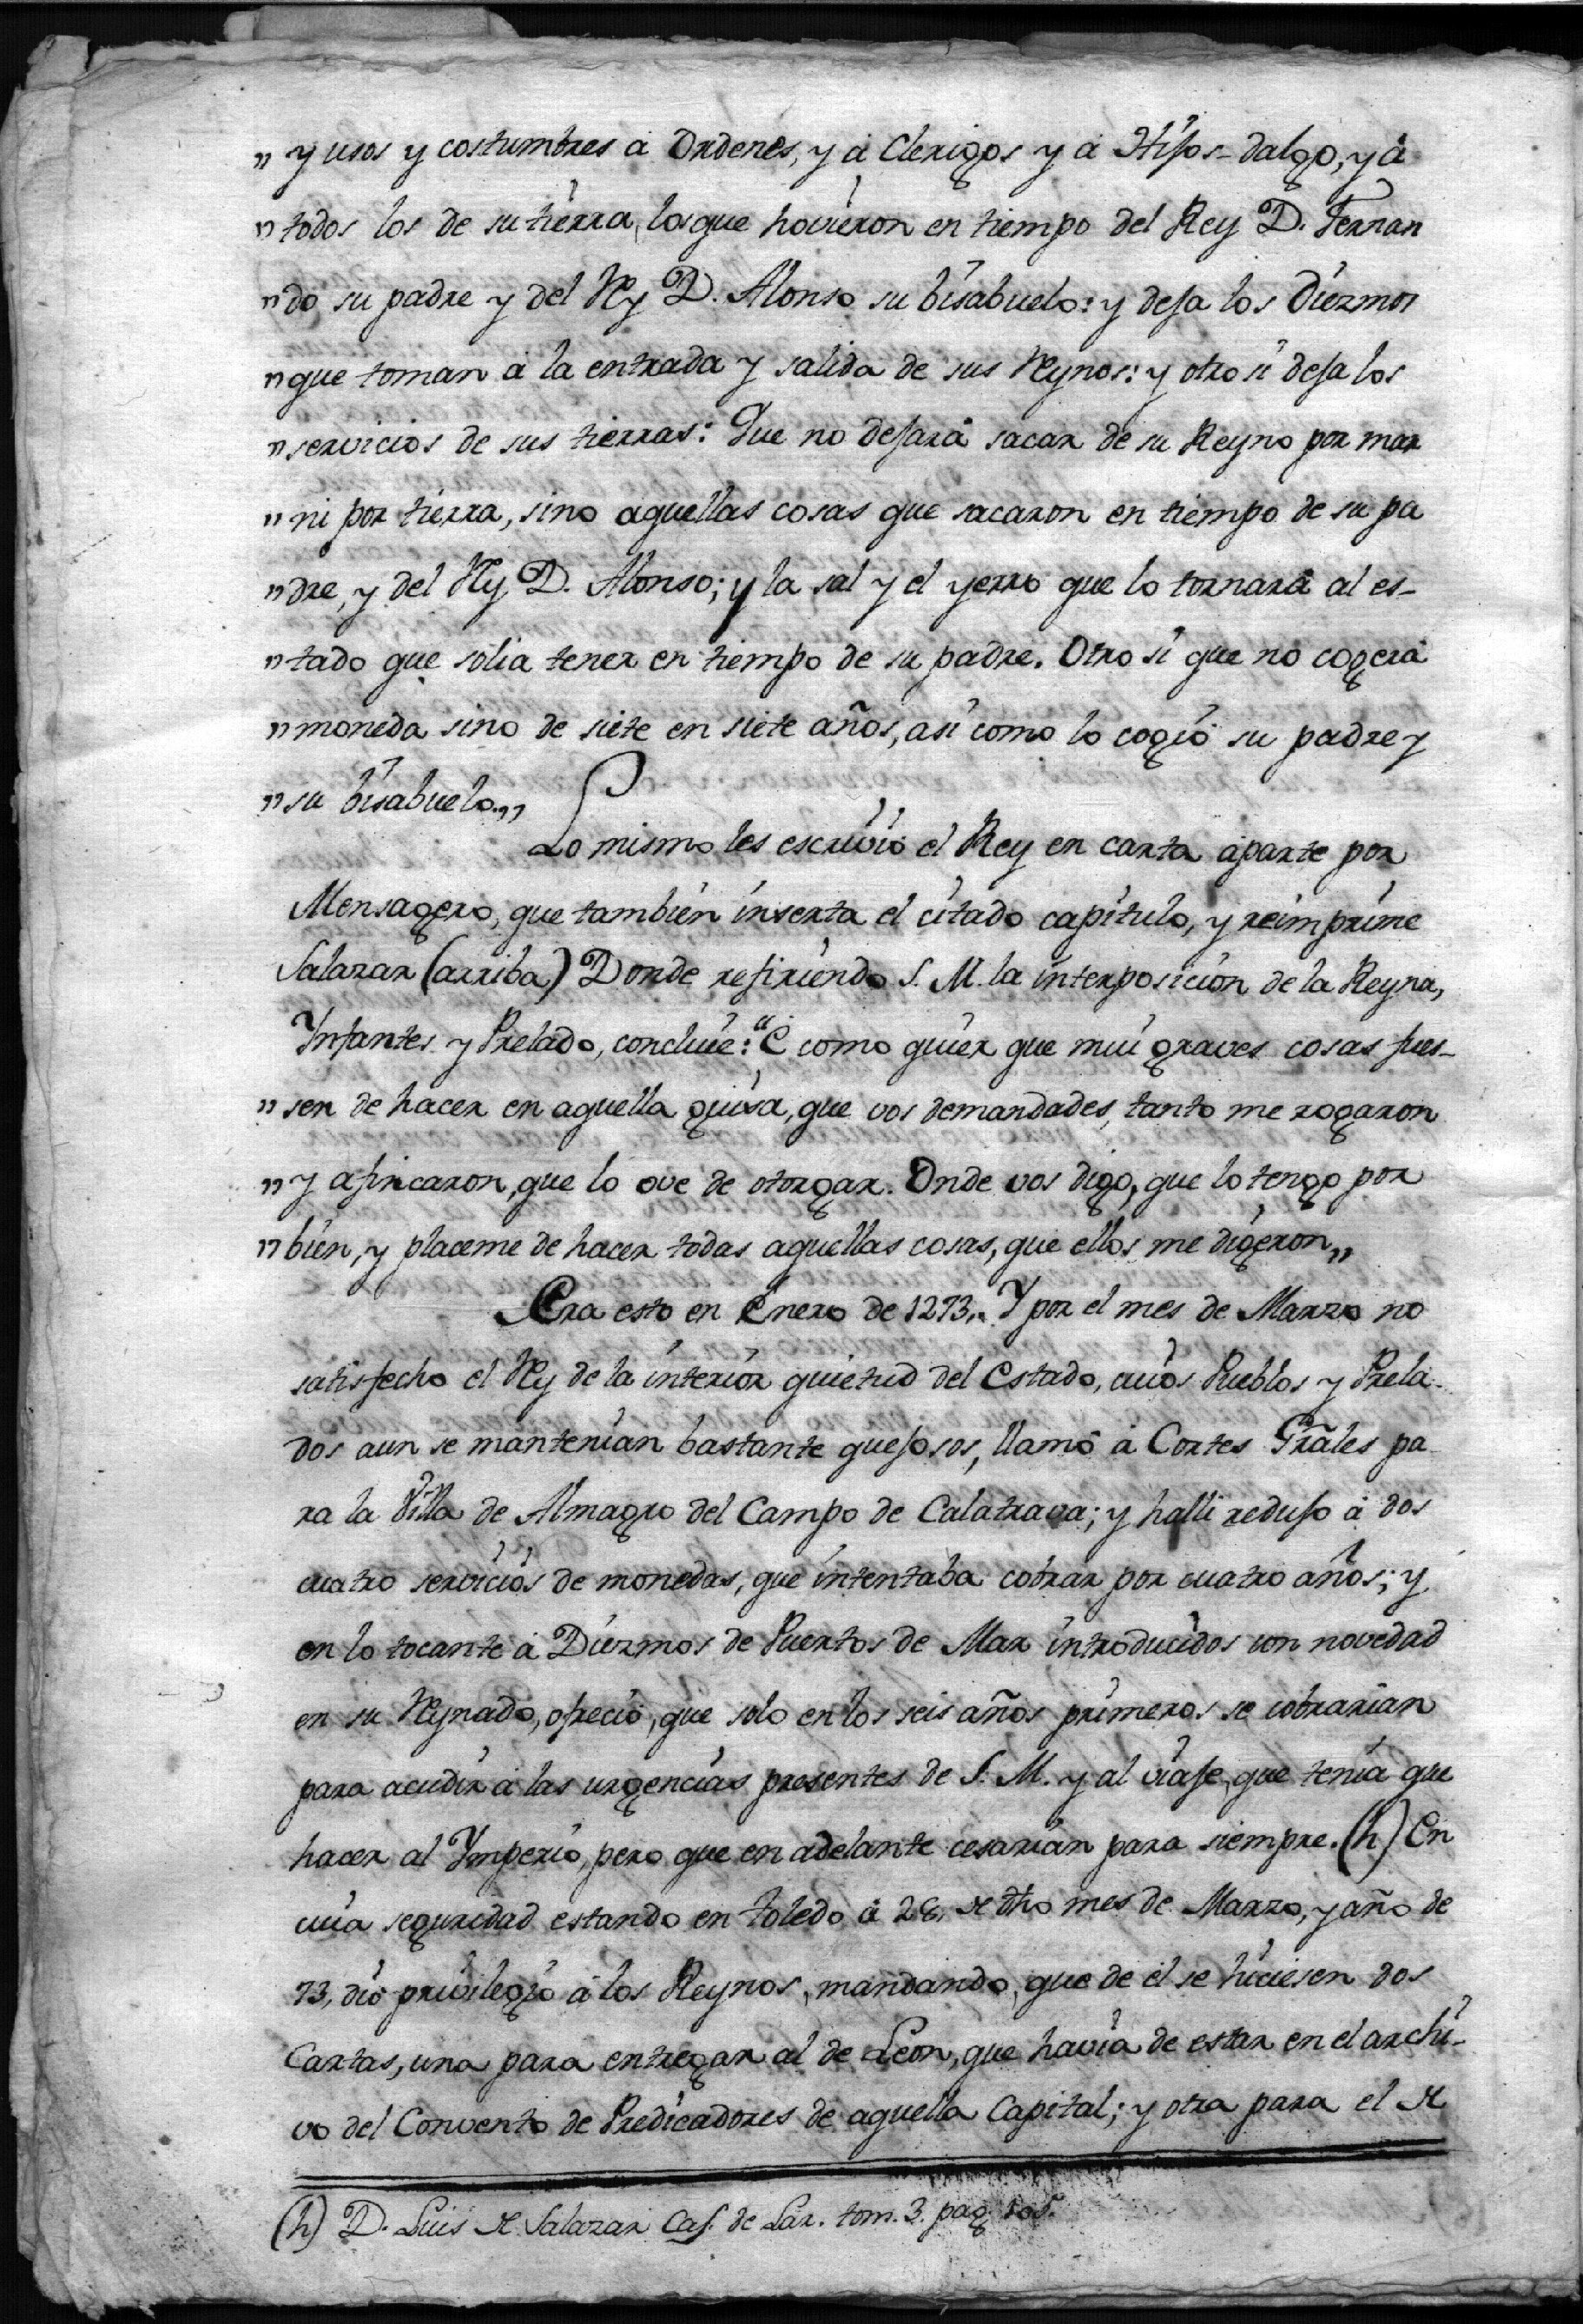 „ y usos y costumbres á Ordenes, y á Clerigos y á Hijos-dalgo, y á
„ todos los de su tierra, los que hovieron en tiempo del Rey D. Fernan
„ do su padre y del Rey D. Alonso su bisabuelo: y deja los Diezmos
„ que toman á la entrada y salida de sus Reynos: y otro si deja los
„ servicios de sus tierras: Que no dejará sacar de su Reyno por mar
„ ni por tierra, sino aquellas cosas que sacaron en tiempo de su pa
„ dre, y del Rey D. Alonso; y la sal y el yerro que lo tornará al es-
„ tado que solia tener en tiempo de su padre. Otro si que no cogerá
„ moneda sino de siete en siete años, asi como lo cogió su padre y
„ su bisabuelo.„
Lo mismo les escrivió el Rey en carta aparte por
Mensagero, que tambien inserta el citado capitulo, y reimprime
Salazar (arriba) Donde refiriendo S. M. la interposicion de la Reyna,
Infantes y Prelado, conclúie: “E como quier que mui graves cosas fues-
„ sen de hacer en aquella guisa, que vos demandades, tanto me rogaron
„ y afincaron, que lo ove de otorgar. Onde vos digo, que lo tengo por
„ bien, y placeme de hacer todas aquellas cosas, que ellos me digeron„
Era esto en Enero de 1273.. Y por el mes de Marzo no
satisfecho el Rey de la interior quietud del Estado, cuios Pueblos y Prela-
dos aun se mantenian bastante quejosos, llamó á Cortes Grâles pa-
ra la Villa de Almagro del Campo de Calatrava; y halli redujo á dos
cuatro servicios de monedas, que intentaba cobrar por cuatro años; y
en lo tocante á Diezmos de Puertos de Mar introducidos con novedad
en su Reynado, ofreció, que solo en los seis años primeros se cobrarian
para acudir á las urgencias presentes de S. M. y al viaje, que tenia que
hacer al Imperio, pero que en adelante cesarian para siempre. (h) En
cuia seguridad estando en toledo á 28, de dho mes de Marzo, y año de
73, dió privilegio á los Reynos, mandando, que de él se hiciesen dos
Cartas, una para entregar al de Leon, que havia de estar en el archi-
vo del Convento de Predicadores de aquella Capital; y otra para el de
(h) D. Luis de Salazar Cas. de Lar. tom. 3. pag.